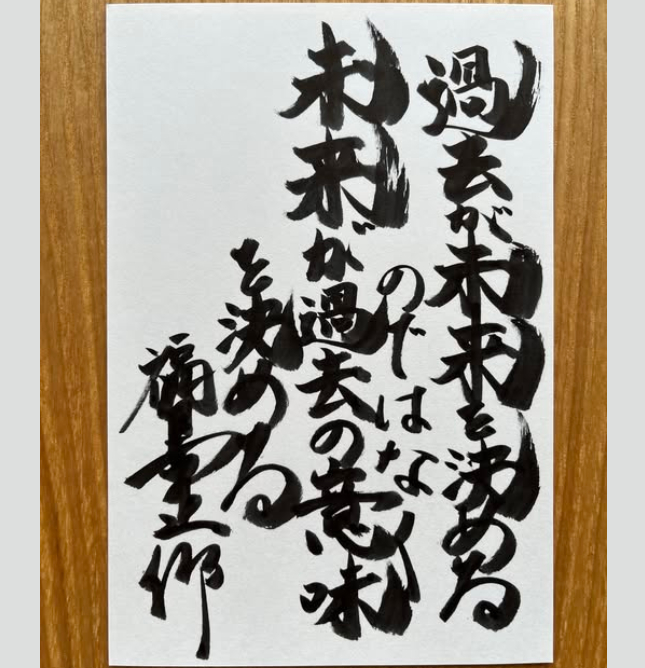 過去が未来を決める
のではない
未来が過去の意味
を決める
福重仰